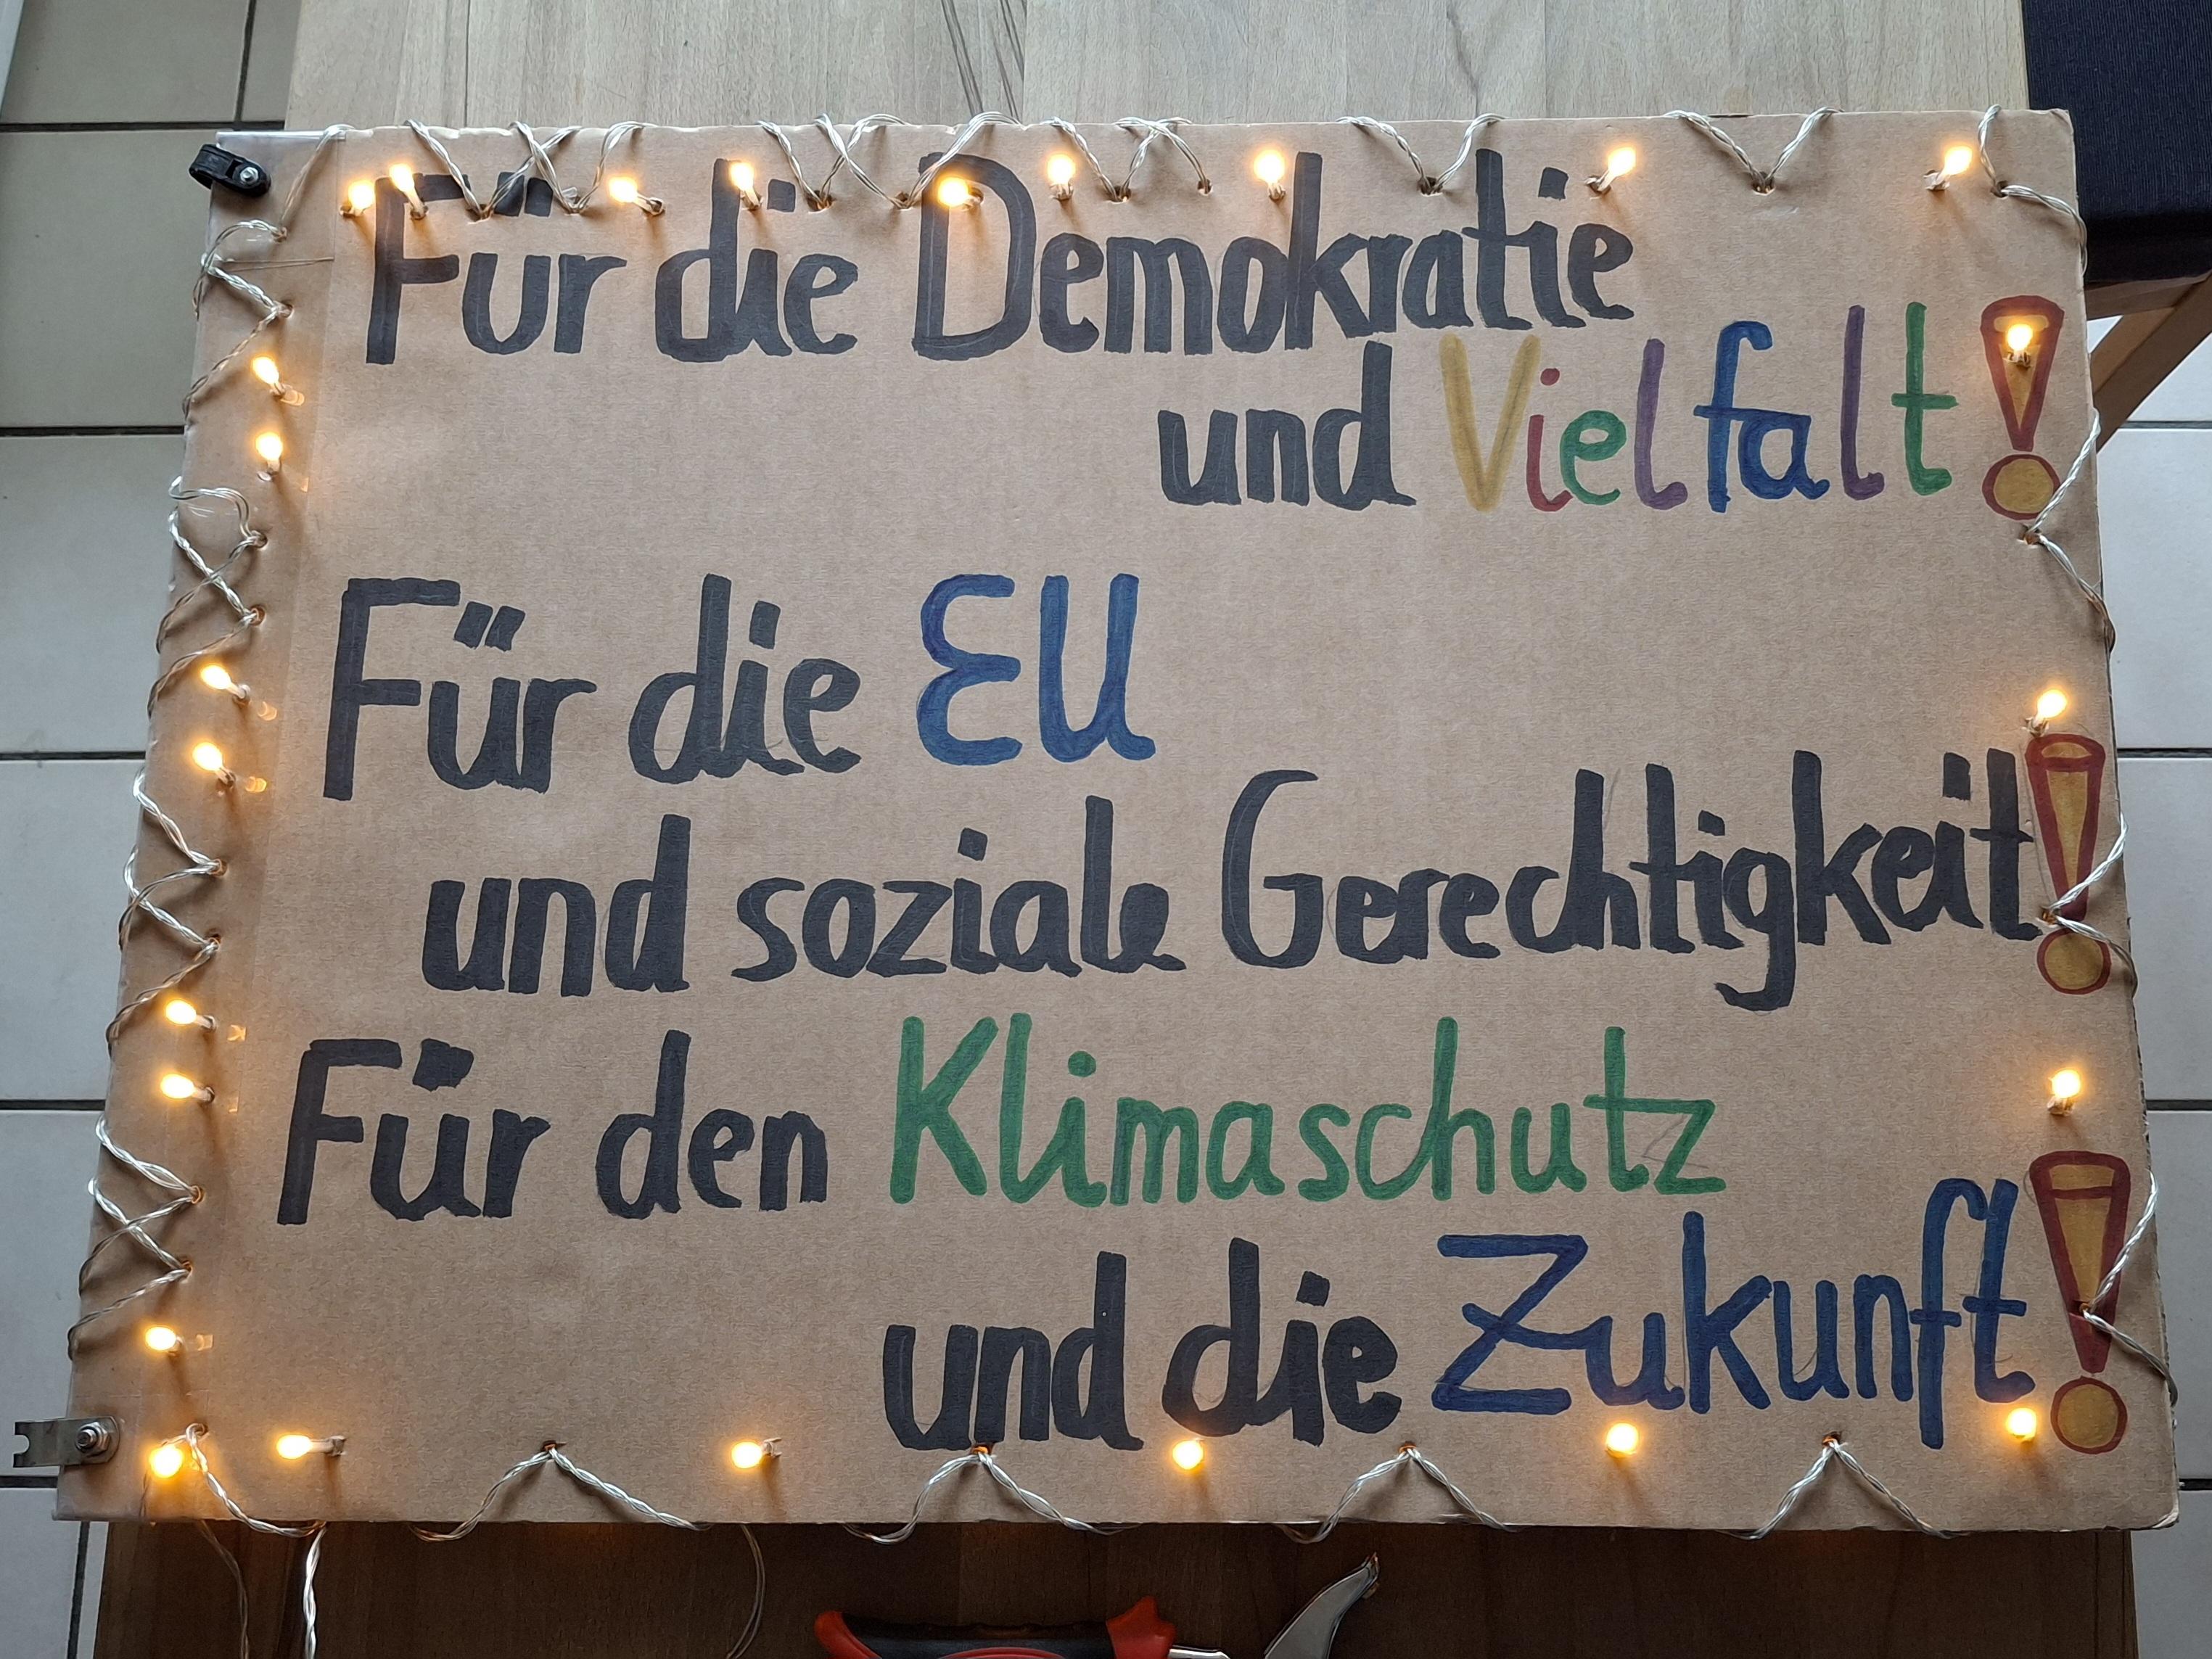 Für die Demokratie
und Vielfalt!
Für die EU
und soziale Gerechtigkeit!
Für den Klimaschutz
und die Zukunft!